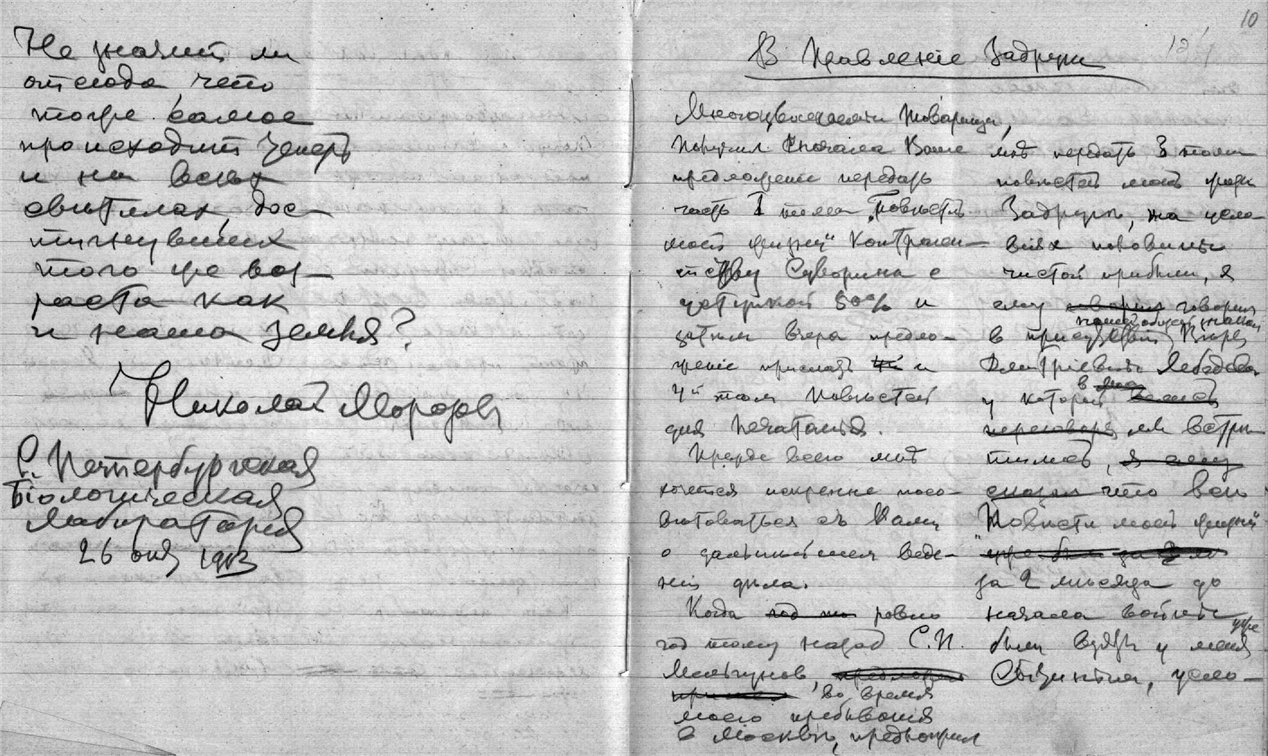 Не значит ли
отсюда, что
тоже самое
происходит теперь
и на всех
светилах, дос-
тигнувших
того же воз-
раста как
и наша земля?
Николай Морозов
С. Петербургская
Біологическая
Лаборатория
26 1913
10
В Правленіе Задруги
Многоуважаемые Товарищи,
Получил сначала Ваше
предложение передать
часть I тома "Повѣсть
моей жизни" Контраген-
ству Суворина с
уступкой 50% и
затем вчера предло-
жение прислать и
4й том Повѣстей
для печатанія.
Прежде всего мнѣ
хочется искренне посо-
вѣтоваться съ Вами
о дальнѣйшем веде-
ніи дѣла.
Когда ровно
год тому назад С.П.
Мельгунов,
во время
моего пребыванія
в Москвѣ, предложил
мнѣ передать 3 тома
повѣстей моей жизни
Задруги, на усло-
віях половины
чистой прибыли, я
ему говорил
в присутствіи
Дмитріевны Лебедевой
у которой в
мы встрѣ-
тились,
что всю
Повѣсть моей жизни"
за 2 мѣсяца до
начала войны
были взять у меня уже
Сытиным, усло-